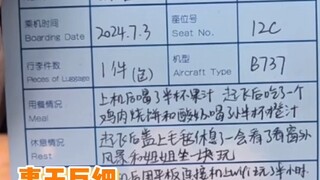 乘机时间 Boarding Date 2024.7.3 座位号 Seat No. 12C
行李件数 Pieces of Luggage 1件(包) 机型 Aircraft Type B737
用餐情况 Meal 上机后喝了半杯果汁 起飞后吃了一个
鸡肉烧饼和酸奶喝了小半杯橙汁
休息情况 Rest 起飞后盖上毛毯休息了一会看了看窗外
风景和姐姐坐一块玩